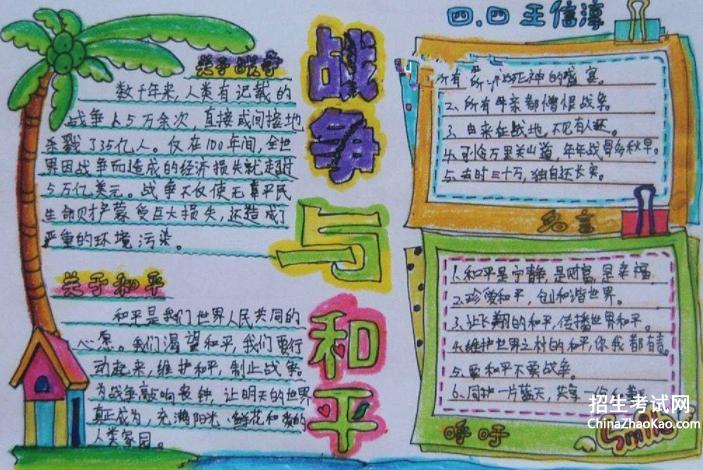 四.四 王信淳
战争与和平
关于战争
数千年来,人类有记载的
战争上5万余次,直接或间接地
杀戮了35亿人。仅在100年间,全世
界因战争而造成的经济损失就超过
5万亿美元。战争不仅使无辜平民
生命财产蒙受巨大损失,还造成了
严重的环境污染。
关于和平
和平是我们世界人民共同的
心愿。我们渴望和平,我们要行
动起来,维护和平,制止战争。
为战争敲响丧钟,让明天的世界
真正成为,充满阳光、鲜花和爱的
人类家园。
所有 死神的盛宴。
2、所有母亲都憎恨战争。
3、由来征战地,不见有人还。
4. 万里关山道,年年战骨多秋草。
5、去时三十万,独自还长安。
名言
1.和平是宁静,是财富,是幸福,
2、珍爱和平,创和谐世界。
3、让飞翔的和平,传播世界和平。
4、维护世界之村的和平,你我都有责。
5、要和平不要战争。
6、同护一片蓝天,共享一份
呼吁
Smile
招生考试网
ChinaZhaoKao.com